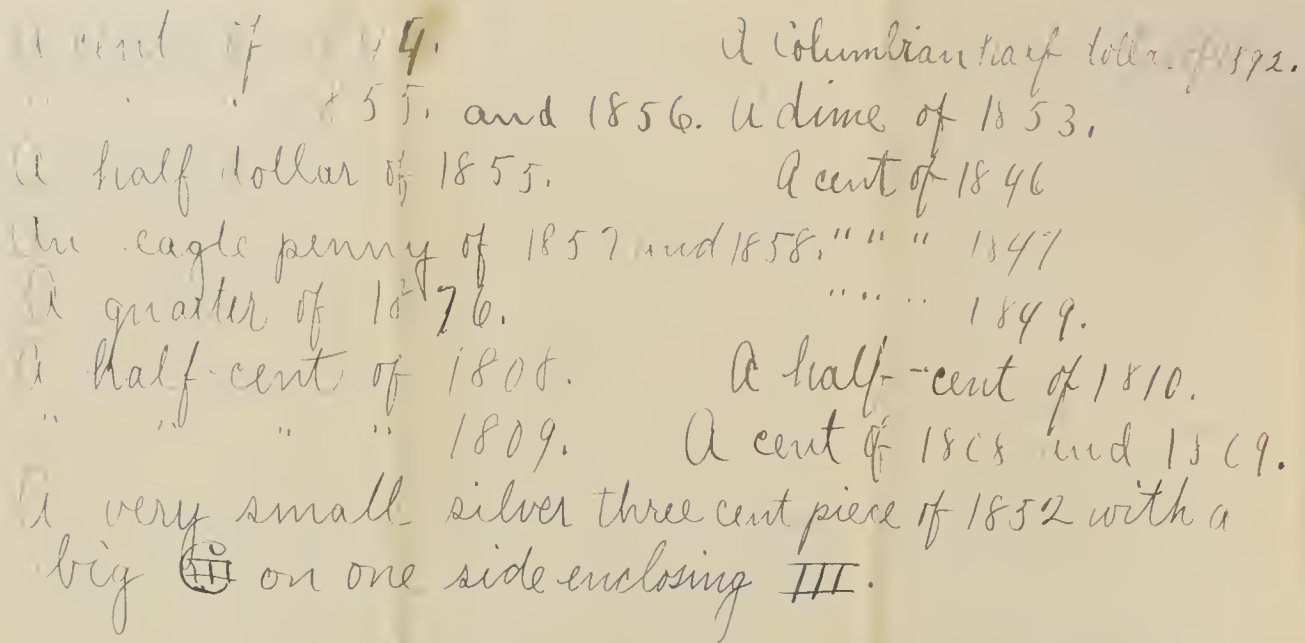 A cent of 4. A Columbian half dollar of 1892.
" " " 1855. and 1856. A dime of 1853.
A half dollar of 1855. A cent of 1846
An eagle penny of 1857 and 1858. " " " 1847
A quarter of 1876. " " " 1849.
A half-cent of 1808. A half-cent of 1810.
" " " " 1809. A cent of 1868 and 1869.
A very small silver three cent piece of 1852 with a
big on one side enclosing III.